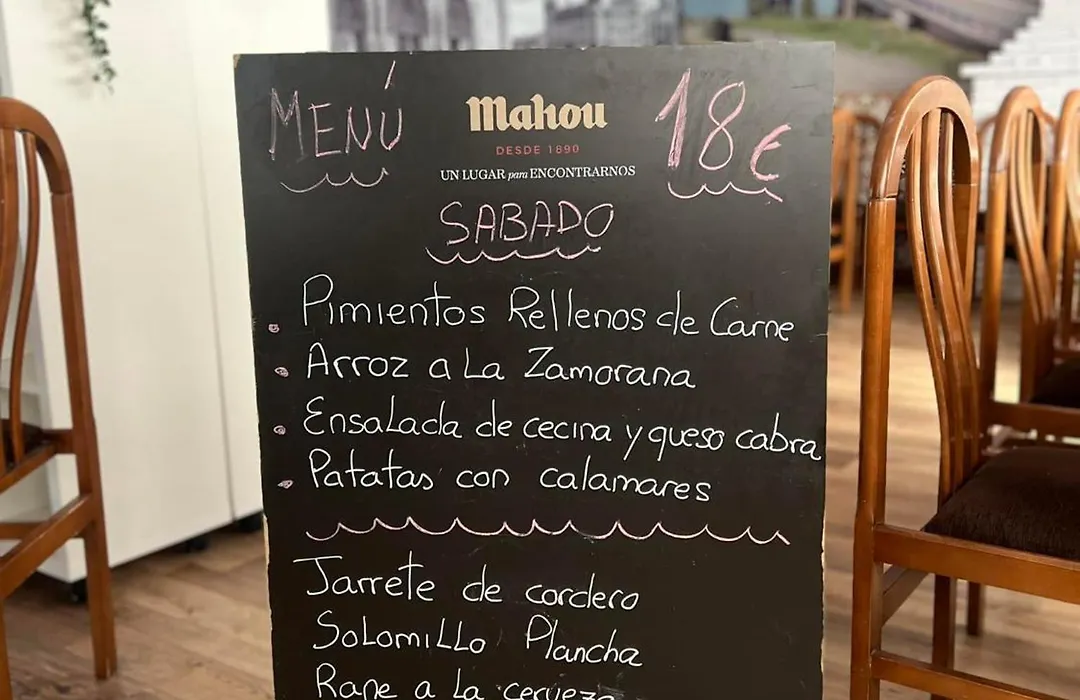 MENÚ
mahou
18€
DESDE 1890
UN LUGAR para ENCONTRARNOS
SABADO
Pimientos Rellenos de Carne
Arroz a La Zamorana
Ensalada de cecina y queso cabra
Patatas con calamares
Jarrete de cordero
Solomillo Plancha
Rape a la cerveza